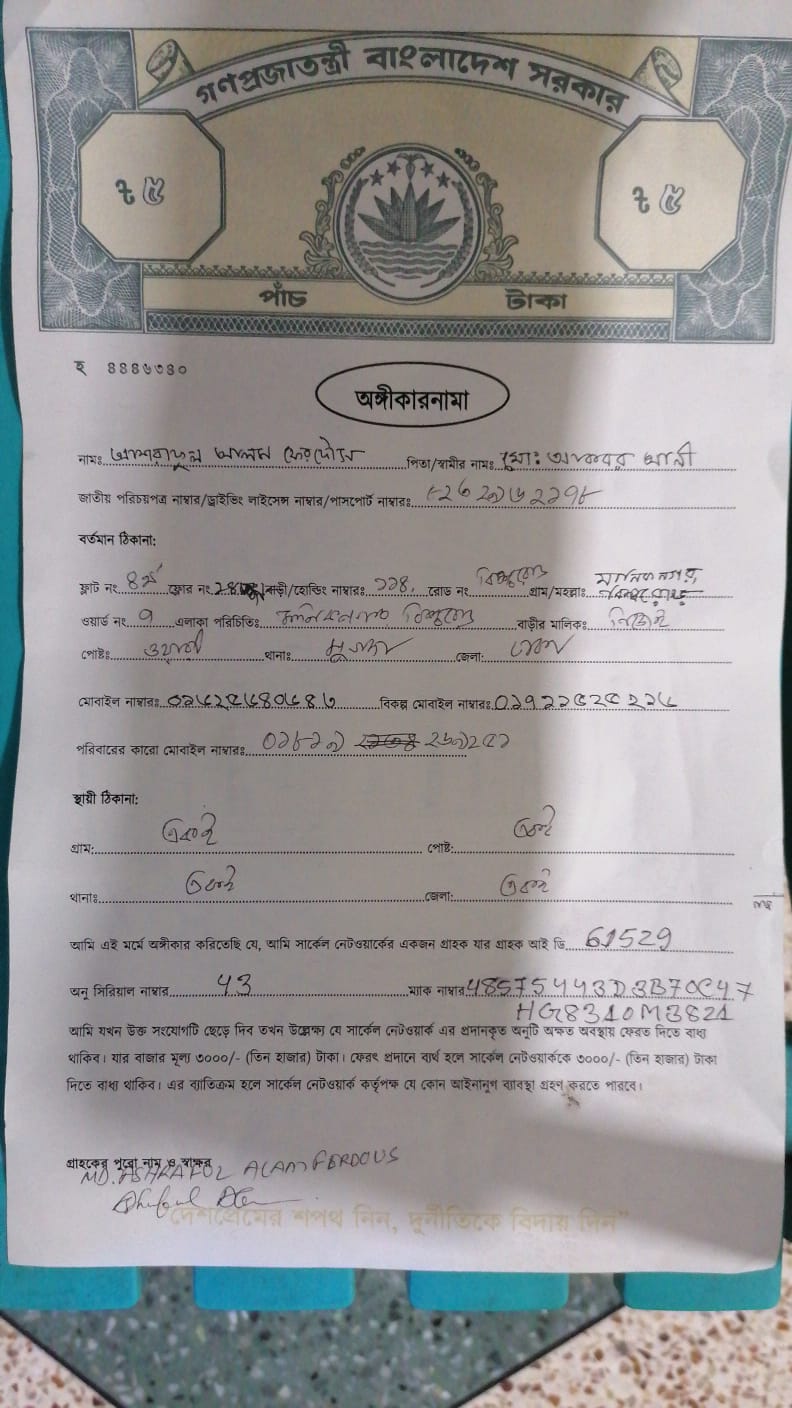 গণপ্রজাতন্ত্রী বাংলাদেশ সরকার
৳ ৫ ৳ ৫
পাঁচ টাকা
হ ৪৪৪৬৩৪০
অঙ্গীকারনামা
নামঃ আশরাফুল আলম ফেরদৌস পিতা/স্বামীর নামঃ মোঃ আকবর আলী
জাতীয় পরিচয়পত্র নাম্বার/ড্রাইভিং লাইসেন্স নাম্বার/পাসপোর্ট নাম্বারঃ
বর্তমান ঠিকানা:
ফ্লাট নং ফ্লোর নং বাড়ী/হোল্ডিং নাম্বারঃ ১১৪, রোড নং গ্রাম/মহল্লাঃ মানিক নগর,
ওয়ার্ড নং ৭ এলাকা পরিচিতিঃ বাড়ীর মালিকঃ নিজেই
পোষ্টঃ ওয়ারী থানাঃ মুগদা জেলা: ঢাকা
মোবাইল নাম্বারঃ বিকল্প মোবাইল নাম্বারঃ
পরিবারের কারো মোবাইল নাম্বারঃ
স্থায়ী ঠিকানা:
গ্রাম: একই পোষ্ট: একই
থানাঃ একই জেলা: একই
আমি এই মর্মে অঙ্গীকার করিতেছি যে, আমি সার্কেল নেটওয়ার্কের একজন গ্রাহক যার গ্রাহক আই ডি 61529
অনু সিরিয়াল নাম্বার 43 ম্যাক নাম্বার 48575443D3B70C47
HG8310M3821
আমি যখন উক্ত সংযোগটি ছেড়ে দিব তখন উল্লেক্ষ্য যে সার্কেল নেটওয়ার্ক এর প্রদানকৃত অনুটি অক্ষত অবস্থায় ফেরত দিতে বাধ্য
থাকিব। যার বাজার মূল্য ৩০০০/- (তিন হাজার) টাকা। ফেরৎ প্রদানে ব্যর্থ হলে সার্কেল নেটওয়ার্ককে ৩০০০/- (তিন হাজার) টাকা
দিতে বাধ্য থাকিব। এর ব্যাতিক্রম হলে সার্কেল নেটওয়ার্ক কর্তৃপক্ষ যে কোন আইনানুগ ব্যাবস্থা গ্রহণ করতে পারবে।
গ্রাহকের পুরো নাম ও স্বাক্ষর
MD. ASHRAFUL ALAM FERDOUS
"দেশপ্রেমের শপথ নিন, দুর্নীতিকে বিদায় দিন"